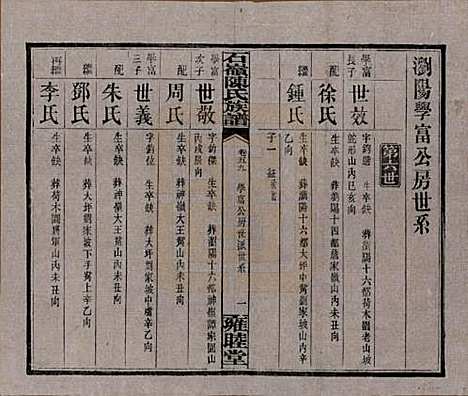 瀏陽學富公房世系
學富長子
世效
字鈞 生卒缺 葬瀏陽十六都荷木園老山坡
蛇形山內巳亥向
配
徐氏
生卒缺 葬瀏陽十四都詹家 山內未丑向
繼
鍾氏
生卒缺 葬瀏陽十六都大坪中 劉家坡山內辛
乙向
子一
石嶺陳氏族譜
卷五九
學富公房世派世系
一
雍睦堂
學富次子
世敬
字鈞 生卒缺 葬瀏陽十六都神嶺譚家園山
丙戌辰向
配
周氏
生卒缺 葬神嶺大王 山內未丑向
學富三子
世義
字鈞 生卒缺 葬大坪劉家坡中 虞辛乙向
配
朱氏
生卒缺 葬神嶺大王 山內未丑向
繼
鄧氏
生卒缺 葬大坪劉家坡下手 上辛乙向
再繼
李氏
生卒缺 葬荷木園將軍山內未丑向